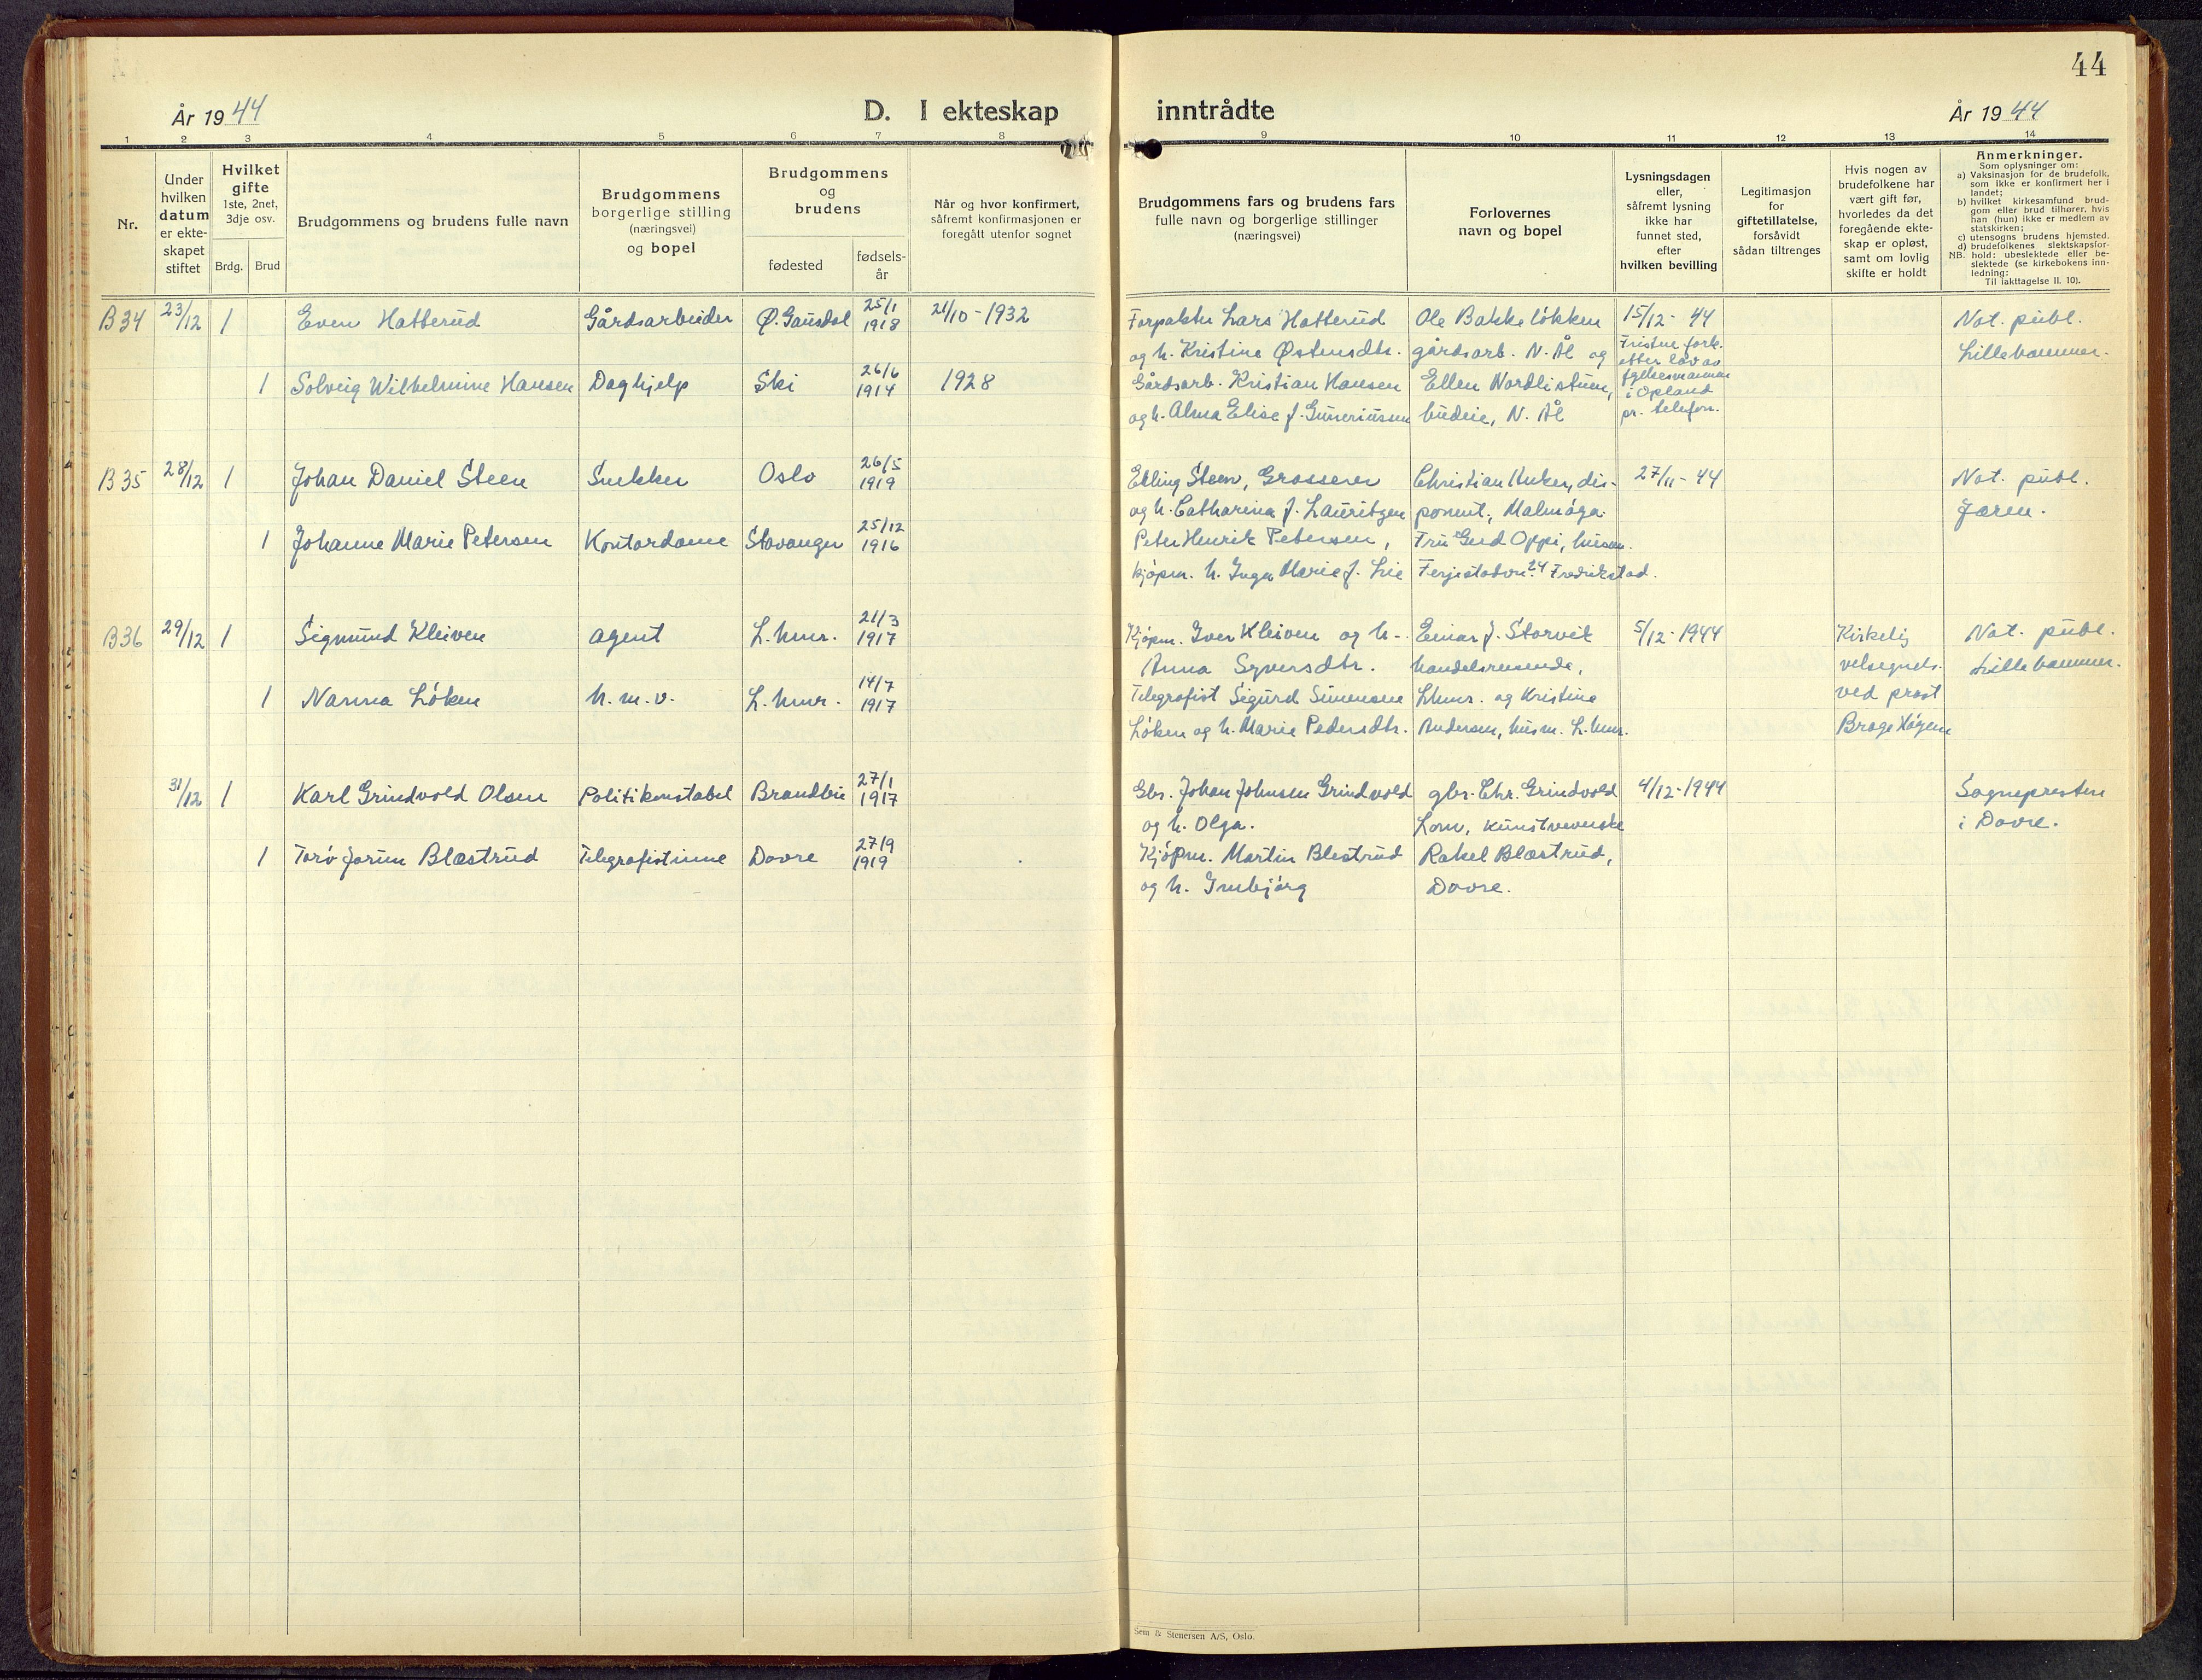 44
År 1944
D. I ekteskap inntrådte
År 1944
1 2 3 4 5 6 7 8 9 10 11 12 13 14
Nr.
Under
hvilken
datum
er ekte-
skapet
stiftet
Hvilket
gifte
1ste, 2net,
3dje osv.
Brdg. Brud
Brudgommens og brudens fulle navn
Brudgommens
borgerlige stilling
(næringsvei)
og bopel
Brudgommens
og
brudens
fødested
fødsels-
år
Når og hvor konfirmert,
såfremt konfirmasjonen er
foregått utenfor sognet
Brudgommens fars og brudens fars
fulle navn og borgerlige stillinger
(næringsvei)
Forlovernes
navn og bopel
Lysningsdagen
eller,
såfremt lysning
ikke har
funnet sted,
efter
hvilken bevilling
Legitimasjon
for
giftetillatelse,
forsåvidt
sådan tiltrenges
Hvis nogen av
brudefolkene har
vært gift før,
hvorledes da det
foregående ekte-
skap er opløst,
samt om lovlig
skifte er holdt
Anmerkninger.
Som oplysninger om:
a) Vaksinasjon for de brudefolk,
som ikke er konfirmert her i
landet;
b) hvilket kirkesamfund brud-
gom eller brud tilhører, hvis
han (hun) ikke er medlem av
statskirken;
c) utensogns brudens hjemsted.
d) brudefolkenes slektskapsfor-
NB. hold: ubeslektede eller be-
slektede (se kirkebokens inn-
ledning:
Til iakttagelse II. 10).
B34 23/12 1 Even Hatterud Gårdsarbeider Ø. Gausdal 25/1 1918 21/10-1932
Forpakter Lars Hatterud Ole Bakkeløkken 15/12-44 Not. publ.
og h. Kristine Østensdtr. gårdsarb. N. Ål og Fristen fork. Lillehammer.
etter lov av
1 Solveig Wilhelmine Hansen Daghjelp Ski 26/6 1914 1928
Gårdsarb. Kristian Hansen Ellen Nordlistuen, fylkesmannen
i Opland
og h. Alma Elise f. Guneriussen budeie, N. Ål pr. telefon.
B35 28/12 1 Johan Daniel Steen Snekker Oslo 26/5 1919
Elling Steen, Grosserer Christian Anker, dis- 27/11-44 Not. publ.
og h. Catharina f. Lauritzen ponent, Malmøya. Jaren.
1 Johanne Marie Petersen Kontordame Stavanger 25/12 1916
Peter Henrik Petersen, Fru Gerd Oppi, husm.
kjøpm. h. Inga Marie f. Lie Ferjestadvn. 24 Fredrikstad.
B36 29/12 1 Sigmund Kleiven agent L.hmr. 21/3 1917
Kjøpm. Iver Kleiven og h. Einar J. Storvik 5/12-1944 Kirkelig Not. publ.
Anna Syversdtr. handelsreisende, velsignels. Lillehammer.
1 Nanna Løken h.m.v. L.hmr. 14/7 1917
Telegrafist Sigurd Simensen Lhmr. og Kristine ved prost
Løken og h. Marie Pedersdtr. Andersen, husm. L.hmr. Brage Høyem
31/12 1 Karl Grindvold Olsen Politikonstabel Brandbu 27/1 1917
Gbr. Johan Johnsen Grindvold gbr. Chr. Grindvold 4/12-1944 Sognepresten
og h. Olga. Lom, kunstveverske i Dovre.
1 Torø Jorun Blæstrud Telegrafistinne Dovre 27/9 1919
Kjøpm. Martin Blestrud Rakel Blæstrud,
og h. Imbjørg Dovre.
Sem & Stenersen A/S, Oslo.